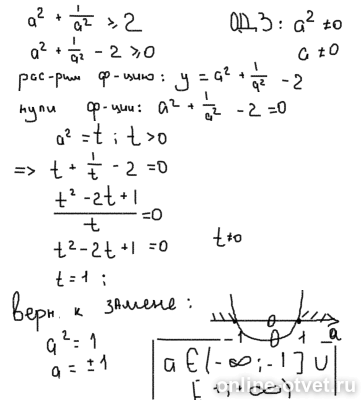 a² + 1/a² ≥ 2    ОДЗ: a² ≠0
a² + 1/a² - 2 ≥0    a ≠0
рас-рим ф-цию: y = a² + 1/a² - 2
нули ф-ции: a² + 1/a² - 2 =0
a² = t ; t >0
=> t + 1/t - 2 =0
(t² -2t +1)/t =0
t² -2t +1 =0    t≠0
t = 1 ;
верн. к замене:
a² = 1
a = ±1
-1 0 1 a
a ∈ (-∞; -1] ∪
[1; +∞)
online-otvet.ru